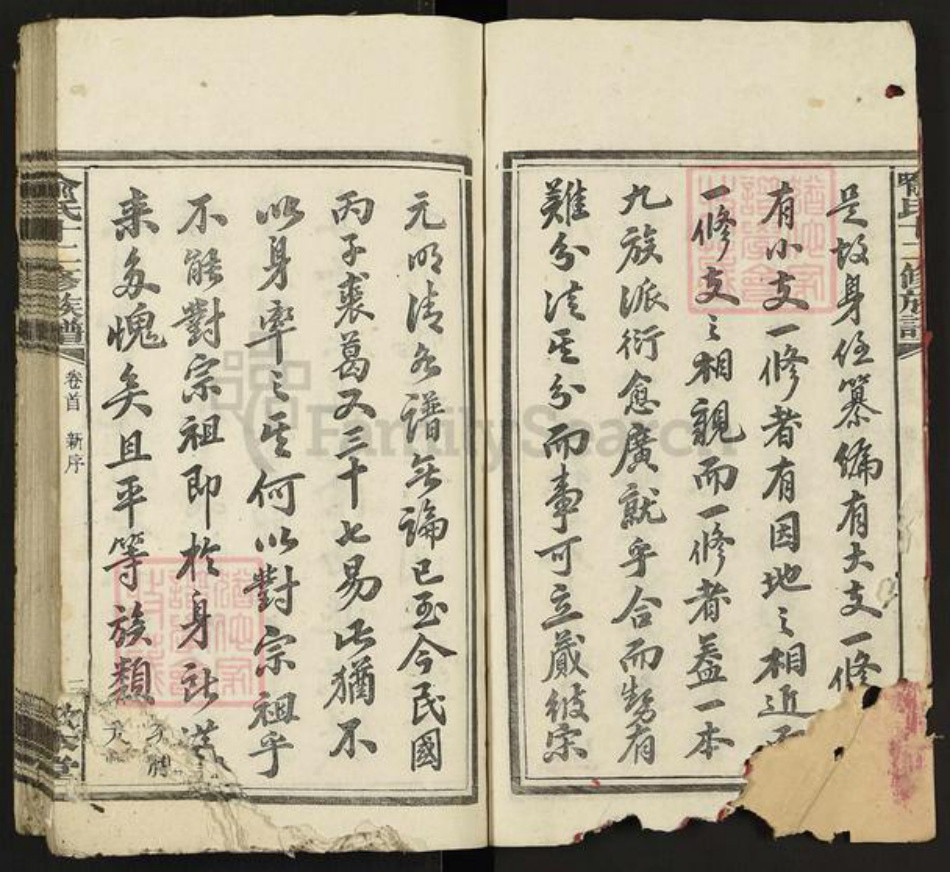 是故身任纂編有大支一修
有小支一修者有因地之相近而
一修支之相親而一修者蓋一本
九族派衍愈廣就乎合而勢有
難分法其分而事可立蕆彼宗
元明清各譜無論已至今民國
丙子裘葛又三十七易此猶不
以身率之其何以對宗祖乎
不能對宗祖即於身
来多愧矣且平等族類
喻氏十二修族譜
卷首 新序
喻氏十二修族譜
FamilySearch